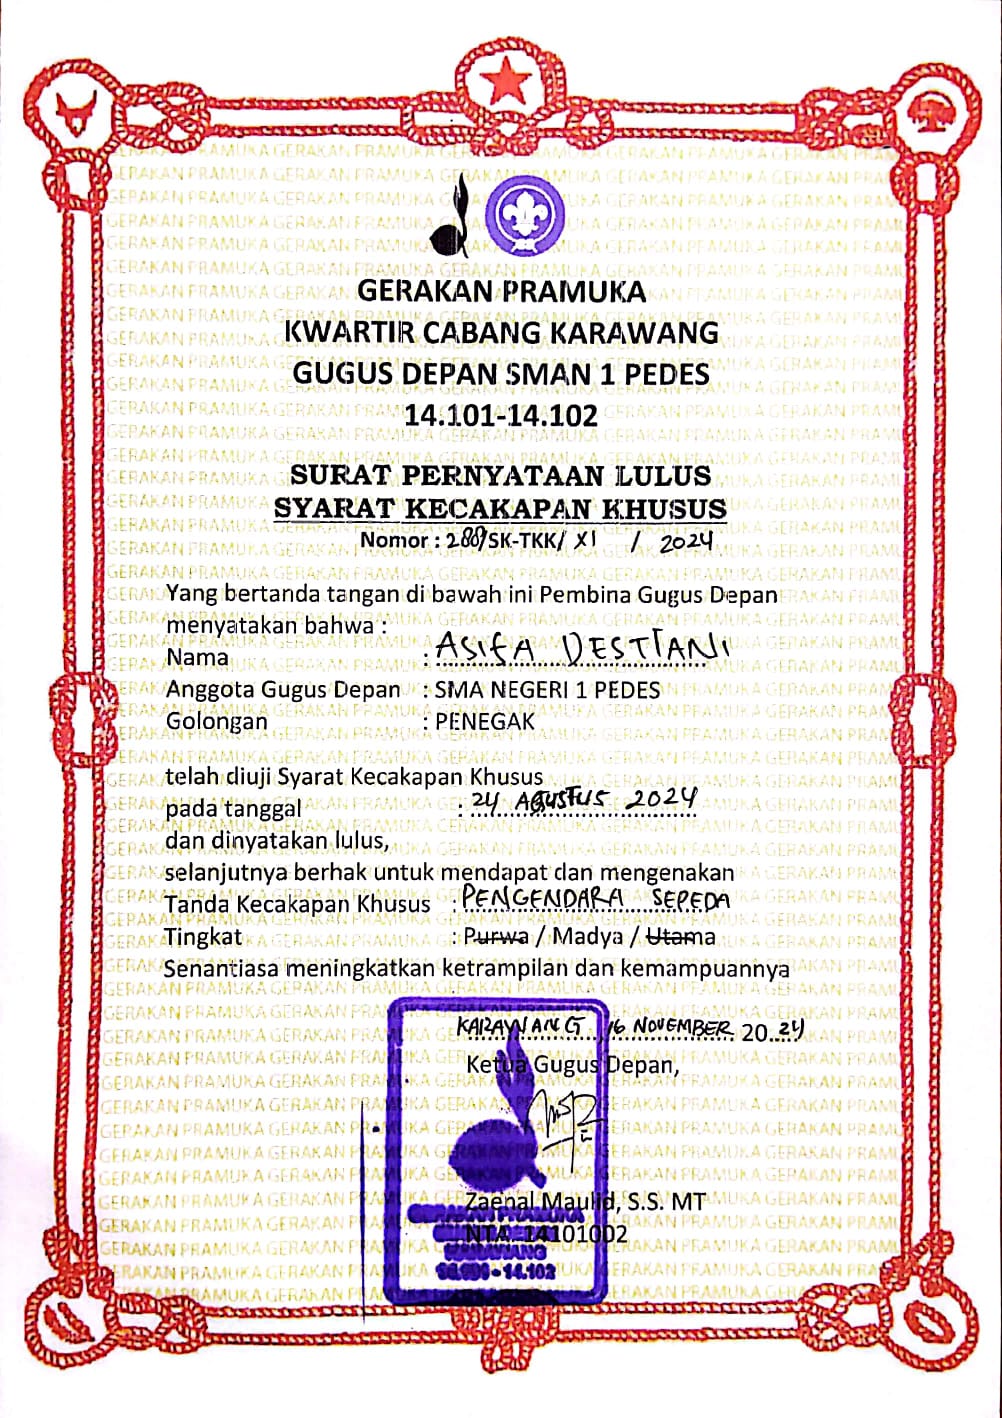 GERAKAN PRAMUKA
KWARTIR CABANG KARAWANG
GUGUS DEPAN SMAN 1 PEDES
14.101-14.102
SURAT PERNYATAAN LULUS
SYARAT KECAKAPAN KHUSUS
Nomor : /SK-TKK/ XI / 2024
Yang bertanda tangan di bawah ini Pembina Gugus Depan
menyatakan bahwa :
Nama : ASIFA DESTIANI
Anggota Gugus Depan : SMA NEGERI 1 PEDES
Golongan : PENEGAK
telah diuji Syarat Kecakapan Khusus
pada tanggal : 24 AGUSTUS 2024
dan dinyatakan lulus,
selanjutnya berhak untuk mendapat dan mengenakan
Tanda Kecakapan Khusus : PENGENDARA SEPEDA
Tingkat : Purwa / Madya / Utama
Senantiasa meningkatkan ketrampilan dan kemampuannya
KARAWANG, 16 NOVEMBER 2024
Ketua Gugus Depan,
Zaenal Maulid, S.S. MT
NTA. 14101002
GERAKAN PRAMUKA
KARAWANG
14.102